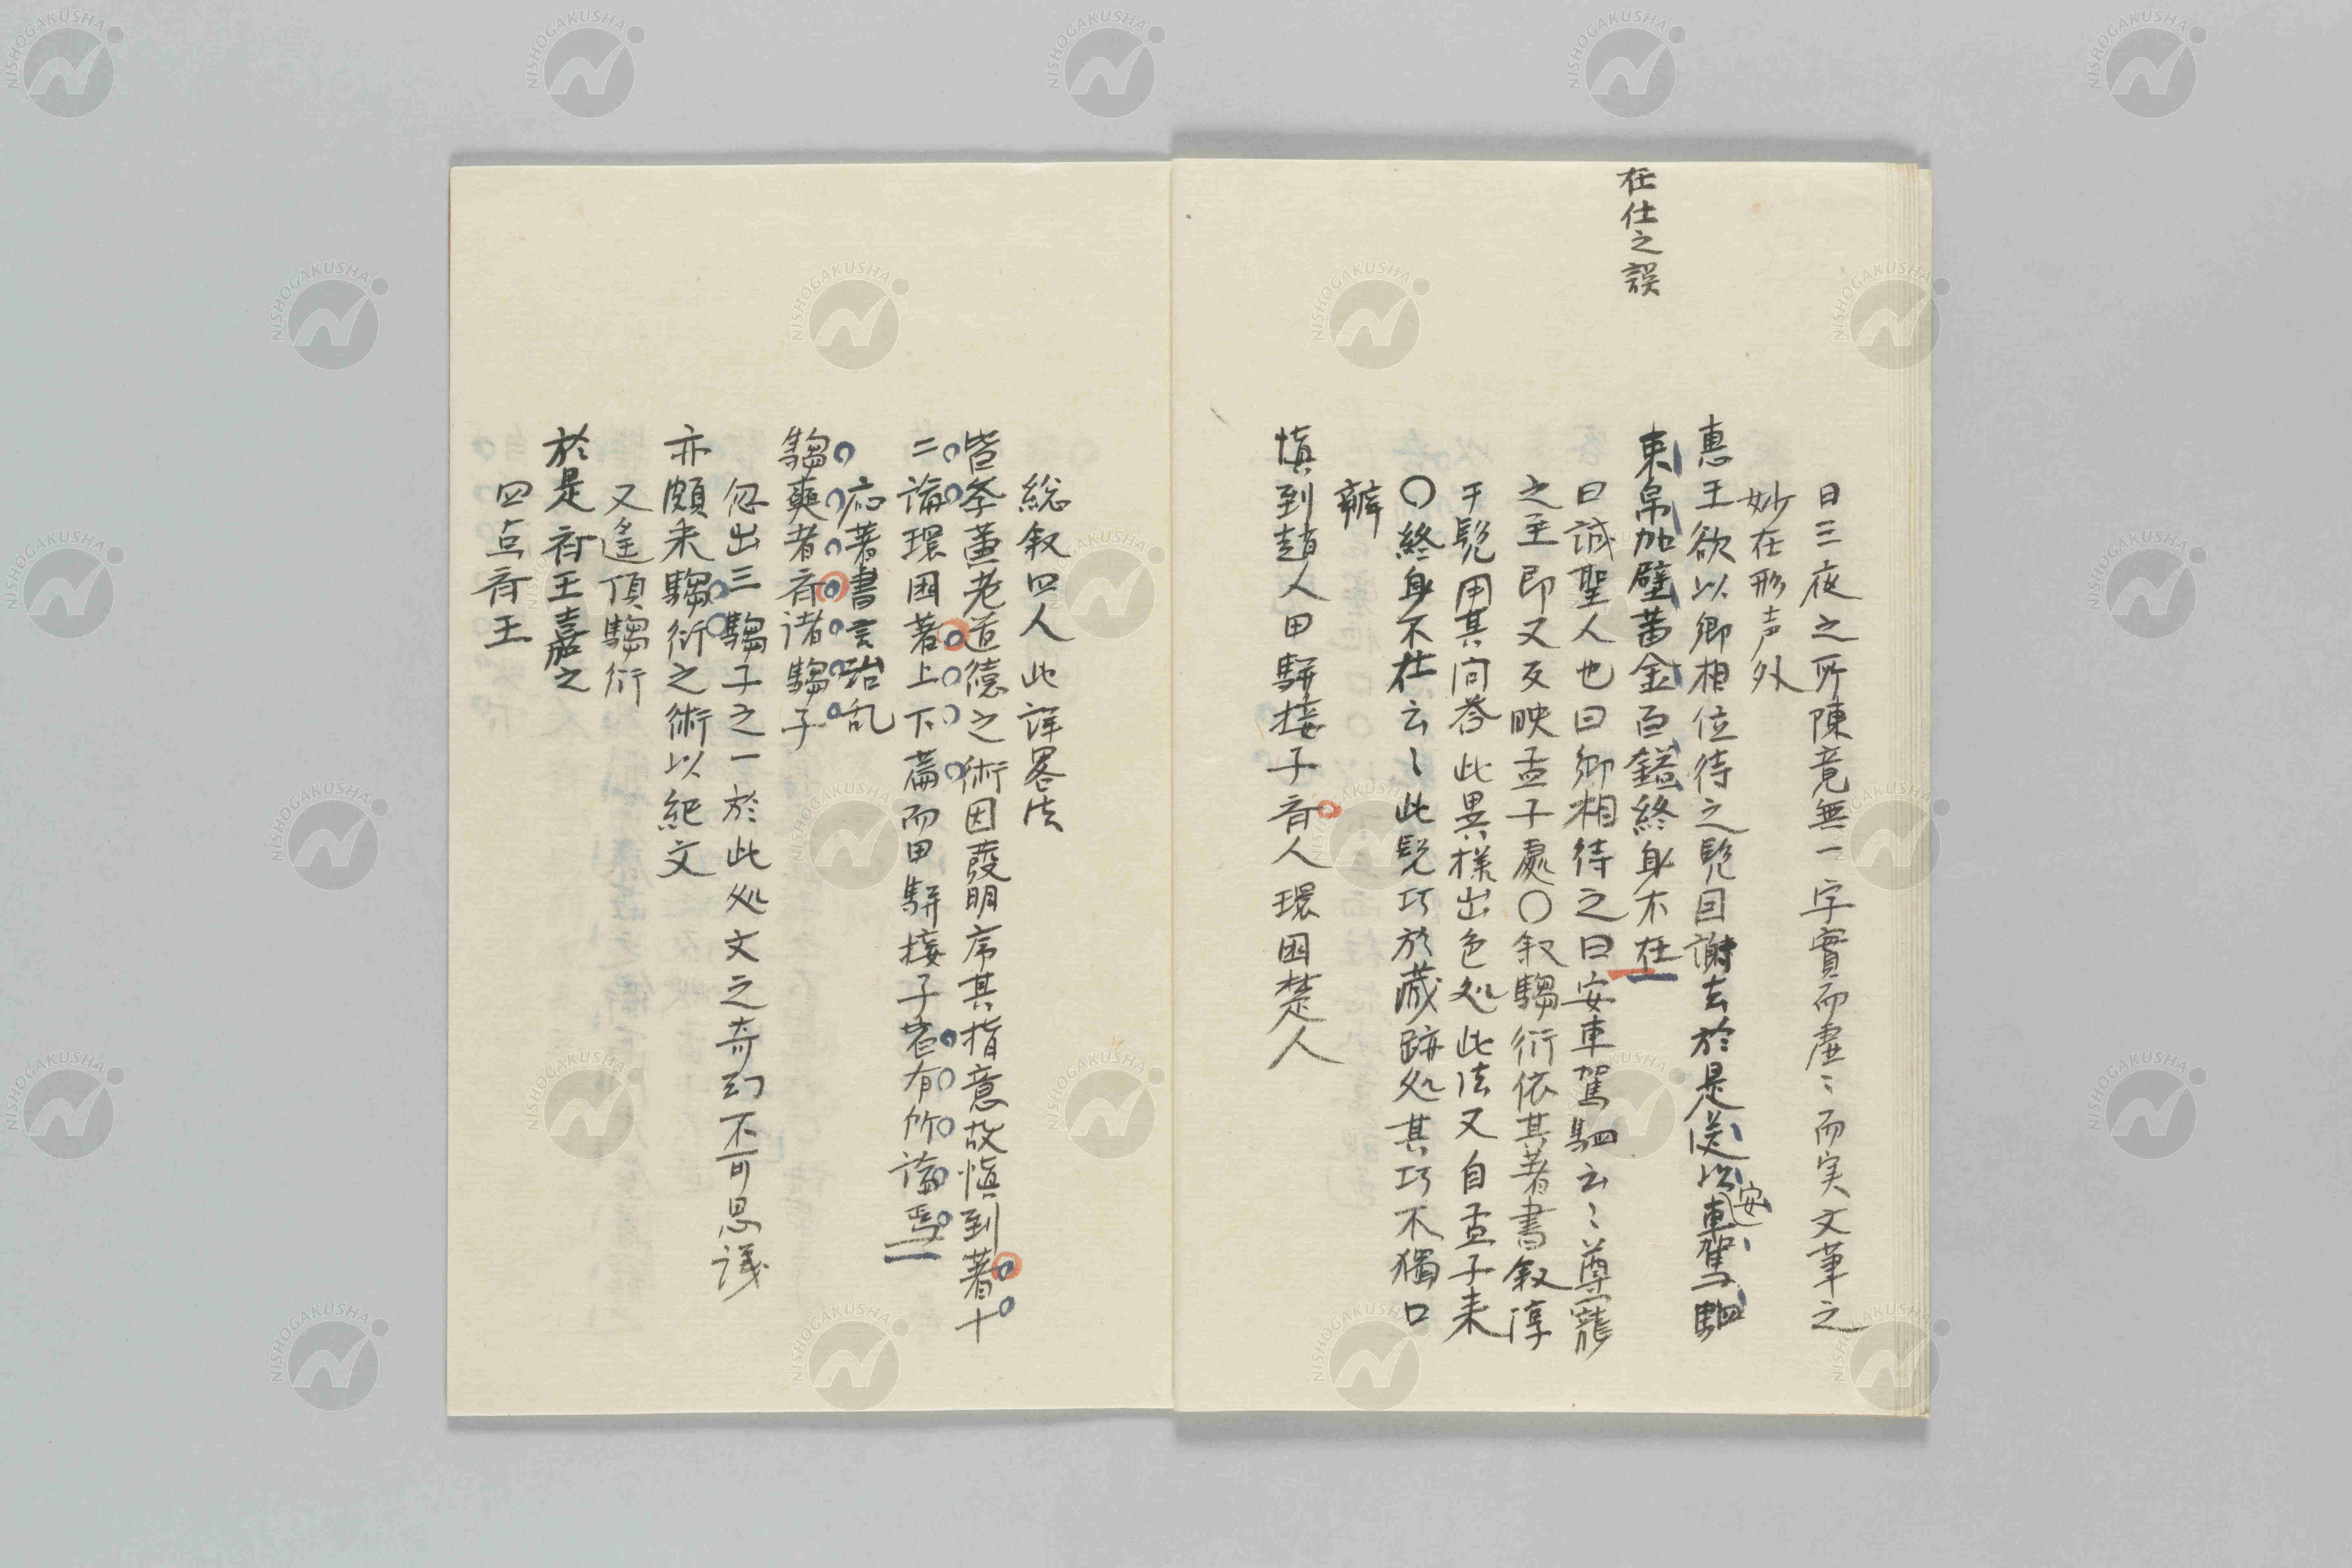 在仕之誤
日三夜之所陳竟無一字實而虚〻而実文筆之
妙在形声外
惠王欲以卿相位待之髡因謝去於是送以安車駕駟
束帛加璧黄金百鎰終身不任
曰誠聖人也曰卿相待之曰安車駕駟云〻尊寵
之至即又反映孟子處〇叙騶衍依其著書叙淳
于髡用其问荅此異様出色処此法又自孟子来
〇終身不仕云〻此髡巧於蔵跡処其巧不獨口
辯
慎到趙人田駢接子斉人環因楚人
総叙四人此詳畧法
皆学黄老道徳之術因發明序其指意故慎到著十
二論環因著上下篇而田駢接子皆有所論焉
応著書言治乱
騶奭者斉诸騶子
忽出三騶子之一於此処文之奇幻不可思议
亦頗来騶衍之術以紀文
又遙頂騶衍
於是斉王嘉之
四点斉王